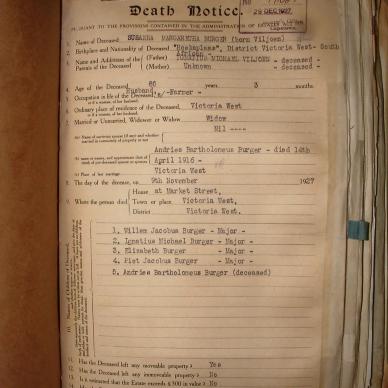 Death Notice.
PURSUANT TO THE PROVISIONS CONTAINED IN THE ADMINISTRATION OF ESTATES
29 DEC 1927
1. Name of Deceased SUSARA MARGARETHA BURGER (born Viljoen)
2. Birthplace and Nationality of Deceased District Victoria West- South
African
3. Names and Addresses of the (Father) IGNATIUS MICHAEL VILJOEN - deceased -
Parents of the Deceased (Mother) Unknown - deceased -
4. Age of the Deceased 86 years 3 months.
5. Occupation in life of the Deceased Husband's/-Farmer-
6. Ordinary place of residence of the Deceased Victoria West
7. Married or Unmarried, Widower or Widow Widow
Nil ----
Andries Bartholomeus Burger - died 14th
April 1916 -
(c) Place of last marriage Victoria West
8. The day of the decease, on 9th November 1927
House at Market Street,
9. Where the person died Town or place Victoria West,
District Victoria West.
10. Names of Children of Deceased
1. Willem Jacobus Burger - Major -
2. Ignatius Michael Burger - Major -
3. Elizabeth Burger - Major -
4. Piet Jacobus Burger - Major -
5. Andries Bartholomeus Burger (deceased)
11. Has the Deceased left any movable property? Yes
12. Has the Deceased left any immovable property? No
13. Is it estimated that the Estate exceeds £300 in value? No